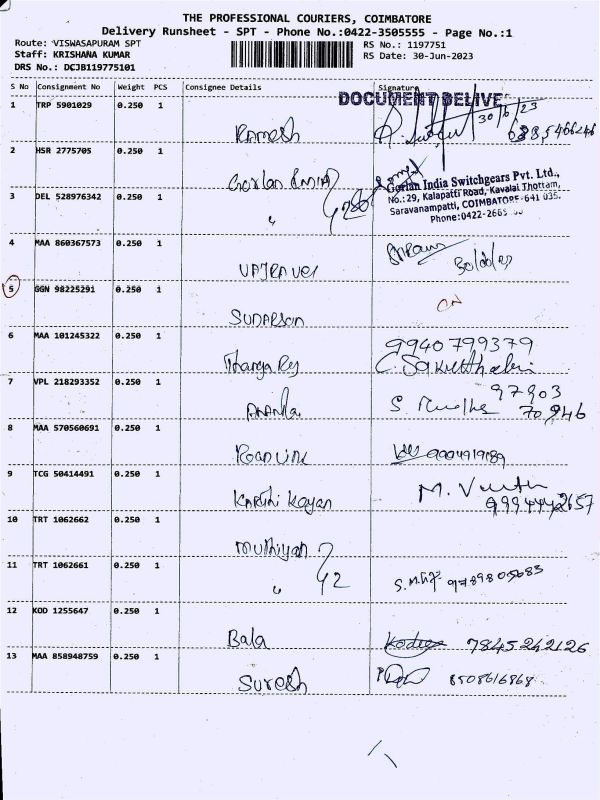 THE PROFESSIONAL COURIERS, COIMBATORE
Delivery Runsheet - SPT - Phone No.:0422-3505555 - Page No.:1
Route: VISWASAPURAM SPT
Staff: KRISHANA KUMAR
DRS No.: DCJB119775101
RS No.: 1197751
RS Date: 30-Jun-2023
S No Consignment No Weight PCS Consignee Details Signature
DOCUMENT DELIVE
1 TRP 5901029 0.250 1
Ramesh 30/6/23
2 HSR 2775705 0.250 1
Gorlan India
Gorlan India Switchgears Pvt. Ltd.,
No.:29, Kalapatti Road, Kavalai Thottam,
Saravanampatti, COIMBATORE-641 035.
Phone:0422-2665
3 DEL 528976342 0.250 1
"
4 MAA 860367573 0.250 1
VAJRAVEL
5 GGN 98225291 0.250 1
SUDARSAN
6 MAA 101245322 0.250 1
9940799379
Thangaraj
7 VPL 218293352 0.250 1
97903
70946
8 MAA 570560691 0.250 1
9 TCG 50414491 0.250 1
Karthikeyan M.
9994442657
10 TRT 1062662 0.250 1
Muthiyah
11 TRT 1062661 0.250 1
" 42
12 KOD 1255647 0.250 1
Bala 7845242126
13 MAA 858948759 0.250 1
Suresh 8508616868